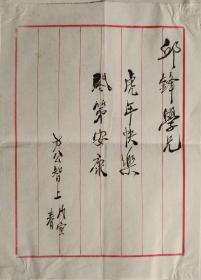 邱鋒學兄
虎年快樂
閤第安康
方公智上
丙寅春